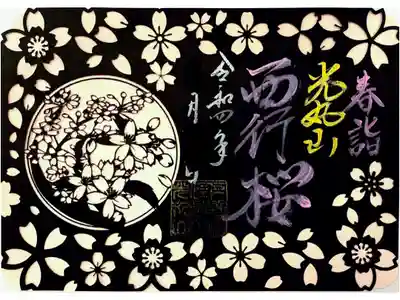 春詣
光丸山
西行桜
令和四年
月